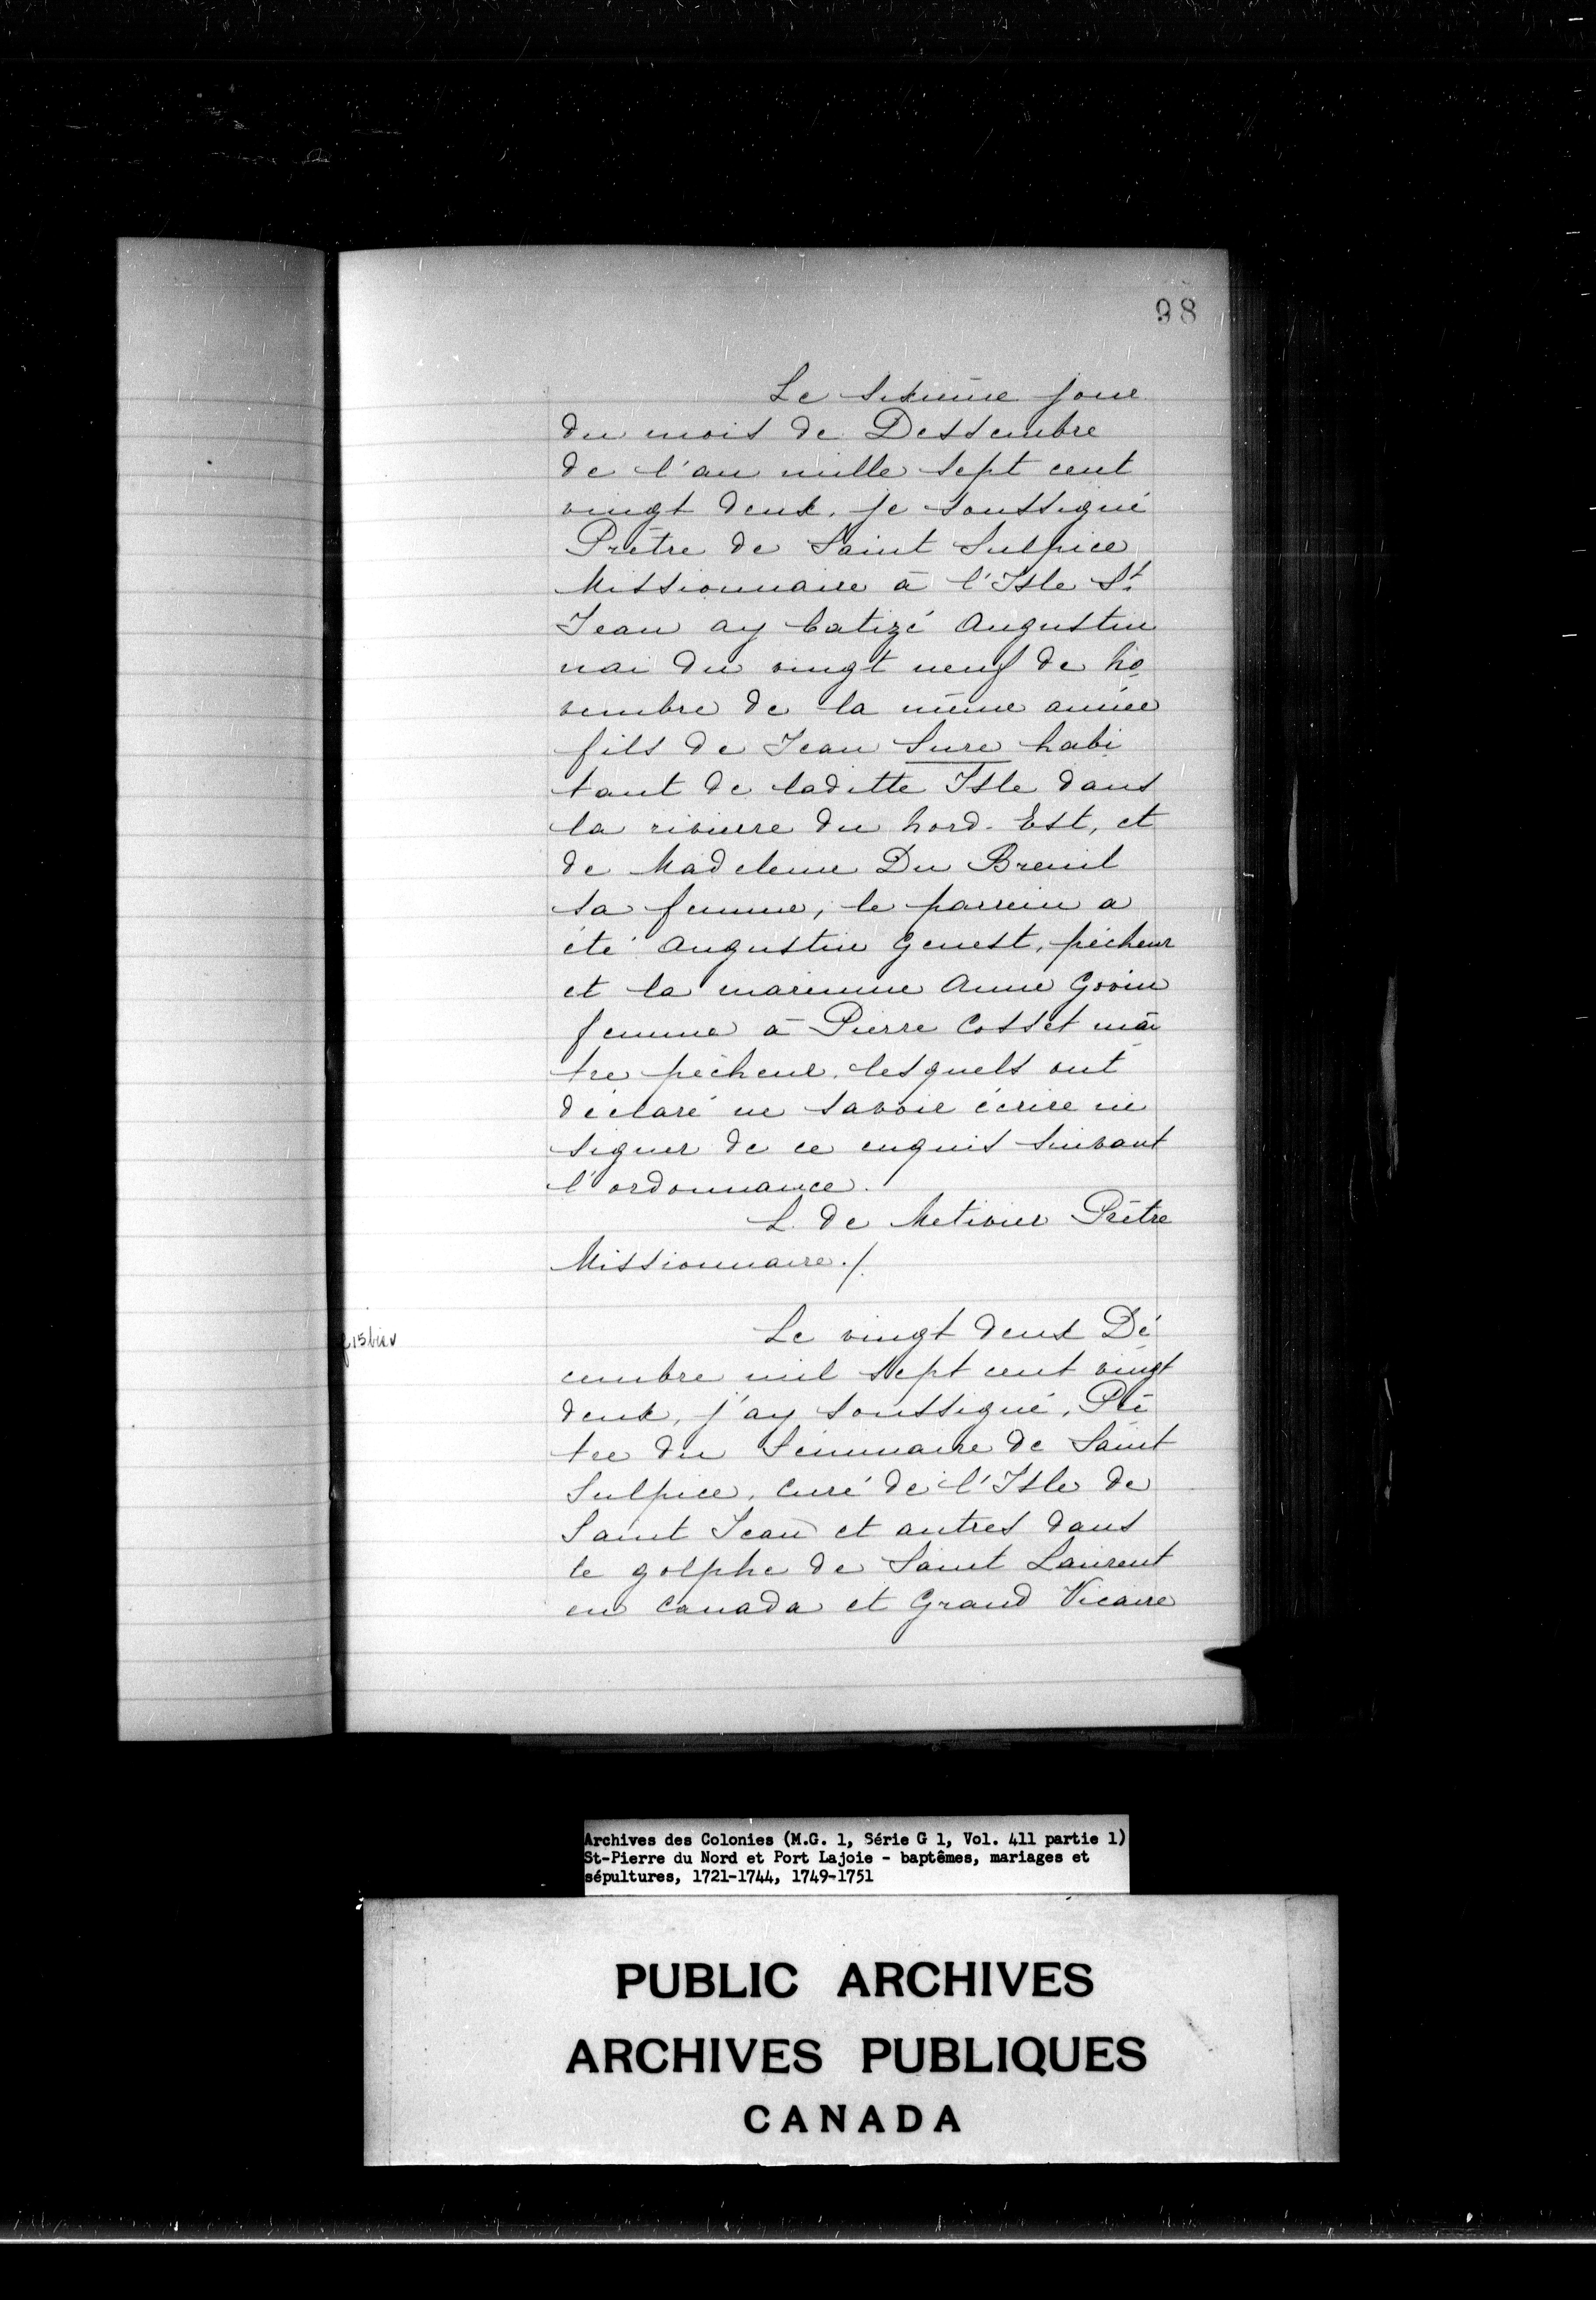 98
Le sixième jour
du mois de Dessembre
de l'an mille sept cent
vingt deux, je soussigné
Prêtre de Saint Sulpice
Missionnaire à l'Isle St.
Jean ay batizé Augustin
nai du vingt neuf de No
vembre de la même année
fils de Jean Sure habi
tant de laditte Isle dans
la rivierre du Nord-Est, et
de Madeleine Du Breuil
sa femme; le parrein a
été Augustin Genest, pécheur
et la mareinne Anne Govin
femme à Pierre Cosset maî
tre pécheur, lesquels ont
déclaré ne savoir écrire ni
signer de ce enquis suivant
l'ordonnance.
L. de Metivier Prêtre
Missionnaire ./.
f 15 bis v
Le vingt deux Dé
cembre mil sept cent vingt
deux, j'ay soussigné, Prê
tre du Séminaire de Saint
Sulpice, curé de l'Isle de
Saint Jean et autres dans
le golphe de Saint Laurent
en Canada et Grand Vicaire
Archives des Colonies (M.G. 1, Série G 1, Vol. 411 partie 1)
St-Pierre du Nord et Port Lajoie - baptêmes, mariages et
sépultures, 1721-1744, 1749-1751
PUBLIC ARCHIVES
ARCHIVES PUBLIQUES
CANADA